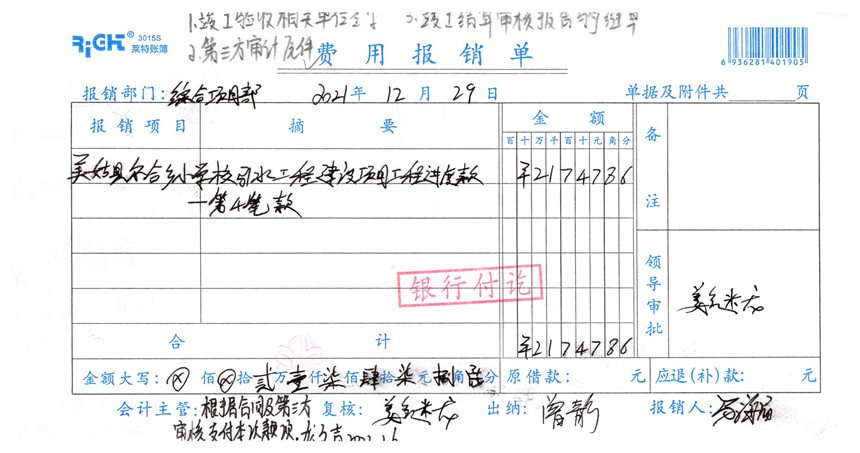 1.竣工验收相关单位签字 3.竣工结算审核报告
2.第三方审计原件
RiGHT® 3015S 莱特账簿
费用报销单
6 936281 401905
报销部门:综合项目部 2021年12月29日 单据及附件共 页
报销项目 摘要 金额 备注
百十万千百十元角分
美姑县尔合乡小学校引水工程建设项目工程进度款 ¥2174786
—第4笔款
银行付讫
领导审批
合计 ¥2174786
金额大写:⊗佰⊗拾贰万壹仟柒佰肆拾柒元捌角陆分 原借款: 元 应退(补)款: 元
会计主管:根据合同及第三方 复核: 出纳:曾静 报销人:
审核支付本次款项.